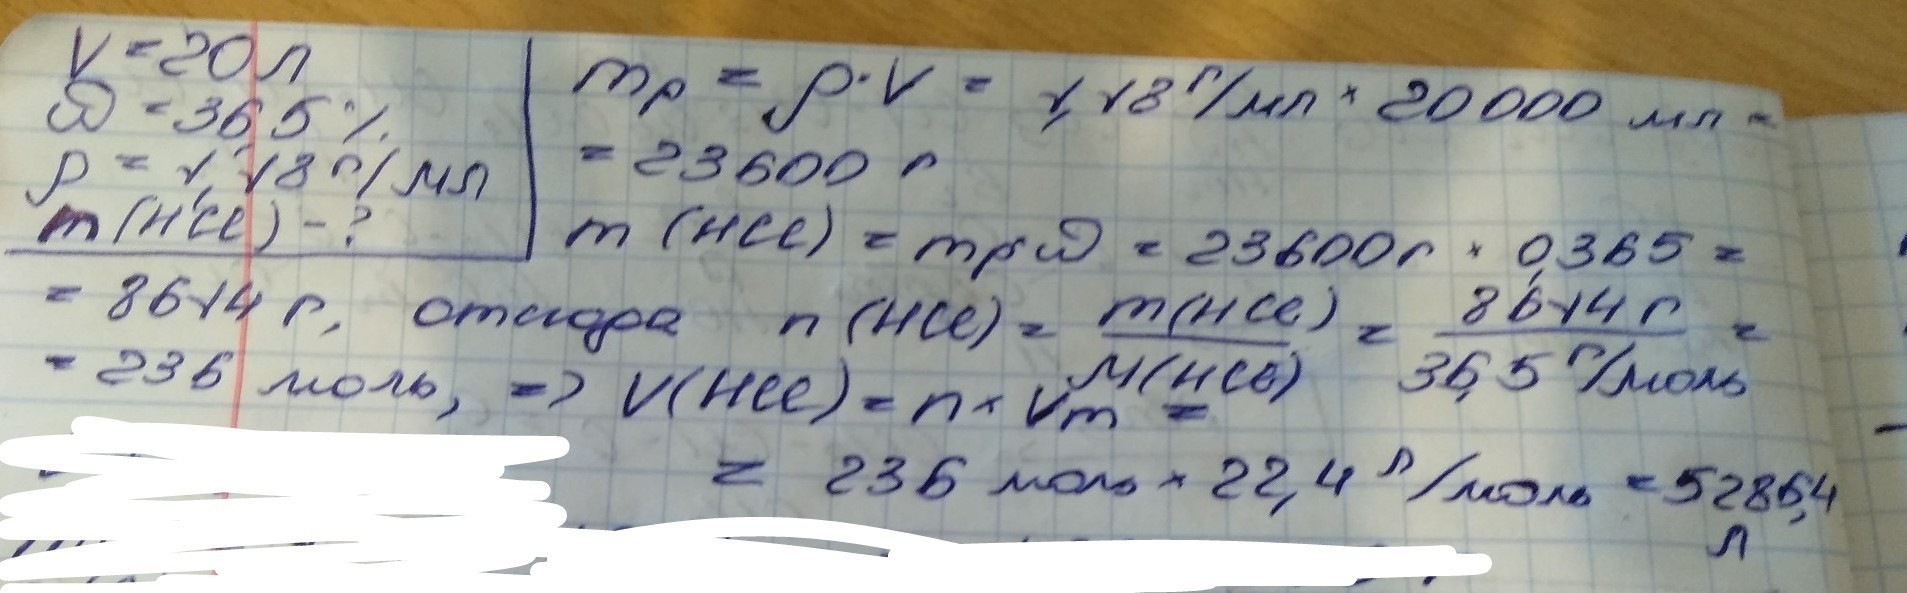 V = 20 л
ω = 36,5 %
ρ = 1,18 г/мл
m(HCl) - ?
mр = ρ·V = 1,18 г/мл × 20000 мл =
= 23600 г
m (HCl) = mр ω = 23600 г × 0,365 =
= 8614 г, откуда n (HCl) = m(HCl)/M(HCl) = 8614 г/36,5 г/моль =
= 236 моль, => V(HCl) = n × Vm =
= 236 моль × 22,4 л/моль = 5286,4
л